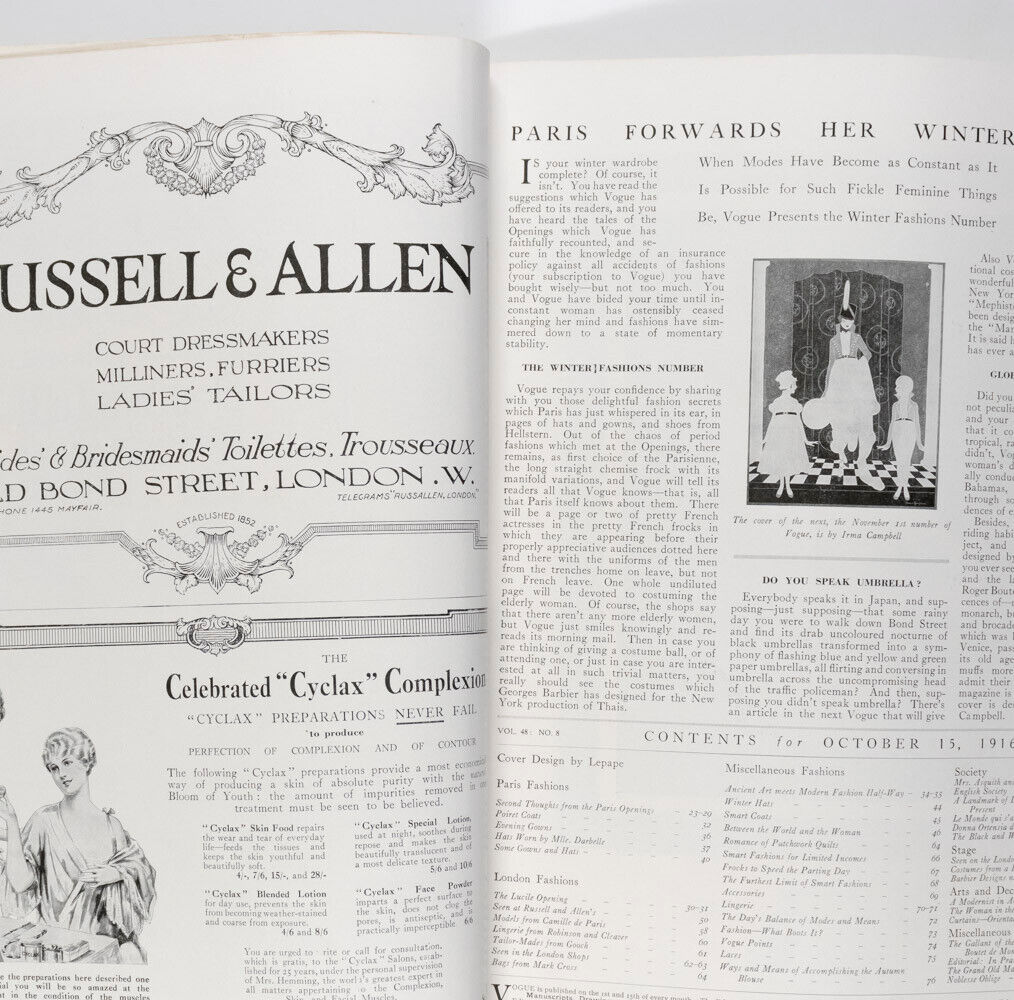 USSELL & ALLEN
COURT DRESSMAKERS
MILLINERS, FURRIERS
LADIES' TAILORS
des' & Bridesmaids' Toilettes, Trousseaux.
D BOND STREET, LONDON .W.
TELEGRAMS "RUSSALLEN, LONDON."
HONE 1445 MAYFAIR.
ESTABLISHED 1852
THE
Celebrated "Cyclax" Complexion
"CYCLAX" PREPARATIONS NEVER FAIL
to produce
PERFECTION OF COMPLEXION AND OF CONTOUR
The following "Cyclax" preparations provide a most economical
way of producing a skin of absolute purity with the natural
Bloom of Youth: the amount of impurities removed in one
treatment must be seen to be believed.
"Cyclax" Skin Food repairs
the wear and tear of everyday
life—feeds the tissues and
keeps the skin youthful and
beautifully soft.
4/-, 7/6, 15/-, and 28/-
"Cyclax" Blended Lotion
for day use, prevents the skin
from becoming weather-stained
and coarse from exposure.
4/6 and 8/6
"Cyclax" Special Lotion,
used at night, soothes during
repose and makes the skin
beautifully translucent and of
a most delicate texture.
5/6 and 10/6
"Cyclax" Face Powder
imparts a perfect surface to
the skin, does not clog the
pores, is antiseptic, and is
practically imperceptible. 6/6
You are urged to rite or call for consultation,
which is gratis, to the "Cyclax" Salons, estab-
lished for 25 years, under the personal supervision
of Mrs. Hemming, the world's greatest expert in
all matters appertaining to the Complexion,
Skin and Facial Muscles.
e the preparations here described one
ial you will be so amazed at the
nt in the condition of the muscles
PARIS FORWARDS HER WINTER
When Modes Have Become as Constant as It
Is Possible for Such Fickle Feminine Things
Be, Vogue Presents the Winter Fashions Number
IS your winter wardrobe
complete? Of course, it
isn't. You have read the
suggestions which Vogue has
offered to its readers, and you
have heard the tales of the
Openings which Vogue has
faithfully recounted, and se-
cure in the knowledge of an insurance
policy against all accidents of fashions
(your subscription to Vogue) you have
bought wisely—but not too much. You
and Vogue have bided your time until in-
constant woman has ostensibly ceased
changing her mind and fashions have sim-
mered down to a state of momentary
stability.
THE WINTER FASHIONS NUMBER
Vogue repays your confidence by sharing
with you those delightful fashion secrets
which Paris has just whispered in its ear, in
pages of hats and gowns, and shoes from
Hellstern. Out of the chaos of period
fashions which met at the Openings, there
remains, as first choice of the Parisienne,
the long straight chemise frock with its
manifold variations, and Vogue will tell its
readers all that Vogue knows—that is, all
that Paris itself knows about them. There
will be a page or two of pretty French
actresses in the pretty French frocks in
which they are appearing before their
properly appreciative audiences dotted here
and there with the uniforms of the men
from the trenches home on leave, but not
on French leave. One whole undiluted
page will be devoted to costuming the
elderly woman. Of course, the shops say
that there aren't any more elderly women,
but Vogue just smiles knowingly and re-
reads its morning mail. Then in case you
are thinking of giving a costume ball, or of
attending one, or just in case you are inter-
ested at all in such trivial matters, you
really should see the costumes which
Georges Barbier has designed for the New
York production of Thais.
The cover of the next, the November 1st number of
Vogue, is by Irma Campbell
DO YOU SPEAK UMBRELLA?
Everybody speaks it in Japan, and sup-
posing—just supposing—that some rainy
day you were to walk down Bond Street
and find its drab uncoloured nocturne of
black umbrellas transformed into a sym-
phony of flashing blue and yellow and green
paper umbrellas, all flirting and conversing in
umbrella across the uncompromising head
of the traffic policeman? And then, sup-
posing you didn't speak umbrella? There's
an article in the next Vogue that will give
Also V
tional cos
wonderful
New York
"Mephist
been desig
the "Mar
It is said h
has ever a
GLO
Did you
not peculia
and your
that it co
tropical, ra
didn't, Vog
woman's d
ally conduc
Bahamas,
through so
dences of e
Besides,
riding habi
ject, and
designed by
you ever see
and the la
Roger Boute
cences of—
monarch, b
and brocade
which was b
Venice, pass
its old age
muffs more
admit their
magazine is
cover is de
Campbell.
VOL. 48: NO. 8
CONTENTS for OCTOBER 15, 1916
Cover Design by Lepape
Paris Fashions
Second Thoughts from the Paris Openings
Poiret Coats 23-29
Evening Gowns 32
Hats Worn by Mlle. Darbelle 36
Some Gowns and Hats 37
40
London Fashions
The Lucile Opening
Seen at Russell and Allen's 30-31
Models from Camille de Paris 50
Lingerie from Robinson and Cleaver 58
Tailor-Mades from Gooch 60
Seen in the London Shops 61
Bags from Mark Cross 62-63
64
Miscellaneous Fashions
Ancient Art meets Modern Fashion Half-Way 34-35
Winter Hats 44
Smart Coats 45
Between the World and the Woman 46
Romance of Patchwork Quilts 64
Smart Fashions for Limited Incomes 66
Frocks to Speed the Parting Day 67
The Furthest Limit of Smart Fashions 68
Accessories 69
Lingerie 70-71
The Day's Balance of Modes and Means 72
Fashion—What Boots It? 73
Vogue Points 74
Laces 75
Ways and Means of Accomplishing the Autumn
Blouse 76
Society
Mrs. Asquith and
English Society
A Landmark of
Present
Le Monde qui s'a
Donna Ortensia d
The Black and W
Stage
Seen on the London
Costumes from a
Barbier Designs
Arts and Dec
A Modernist in A
The Woman in the
Curtains—Orienta
Miscellaneous
The Gallant of the
Boutet de Mon
Editorial: In Pra
The Grand Old Ma
Noblesse Oblige
VOGUE is published on the 1st and 15th of every month